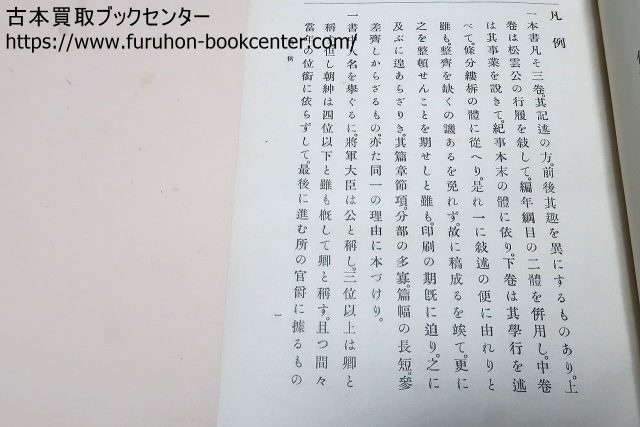 古本買取ブックセンター
https://www.furuhon-bookcenter.com/
凡例
一本書凡そ三卷。其記述の方、前後其趣を異にするものあり。上
卷は松雲公の行履を敍して、編年綱目の二體を併用し。中卷
は其事業を説きて、紀事本末の體に依り。下卷は其學行を述
べて、條分縷柝の體に從へり。是れ一に敍述の便に由れりと
雖も、整齊を缺くの譏あるを免れず。故に稿成るを竢て、更に
之を整頓せんことを期せしと雖も、印刷の期既に迫り、之に
及ぶに遑あらざりき。其篇章節項、分部の多寡、篇幅の長短、參
差齊しからざるもの、亦た同一の理由に本づけり。
一書中人名を擧ぐるに、將軍大臣は公と稱し。三位以上は卿と
稱す。但し朝紳は四位以下と雖も概して卿と稱す。且つ間々
當年の位銜に依らずして、最後に進む所の官爵に據るもの
一